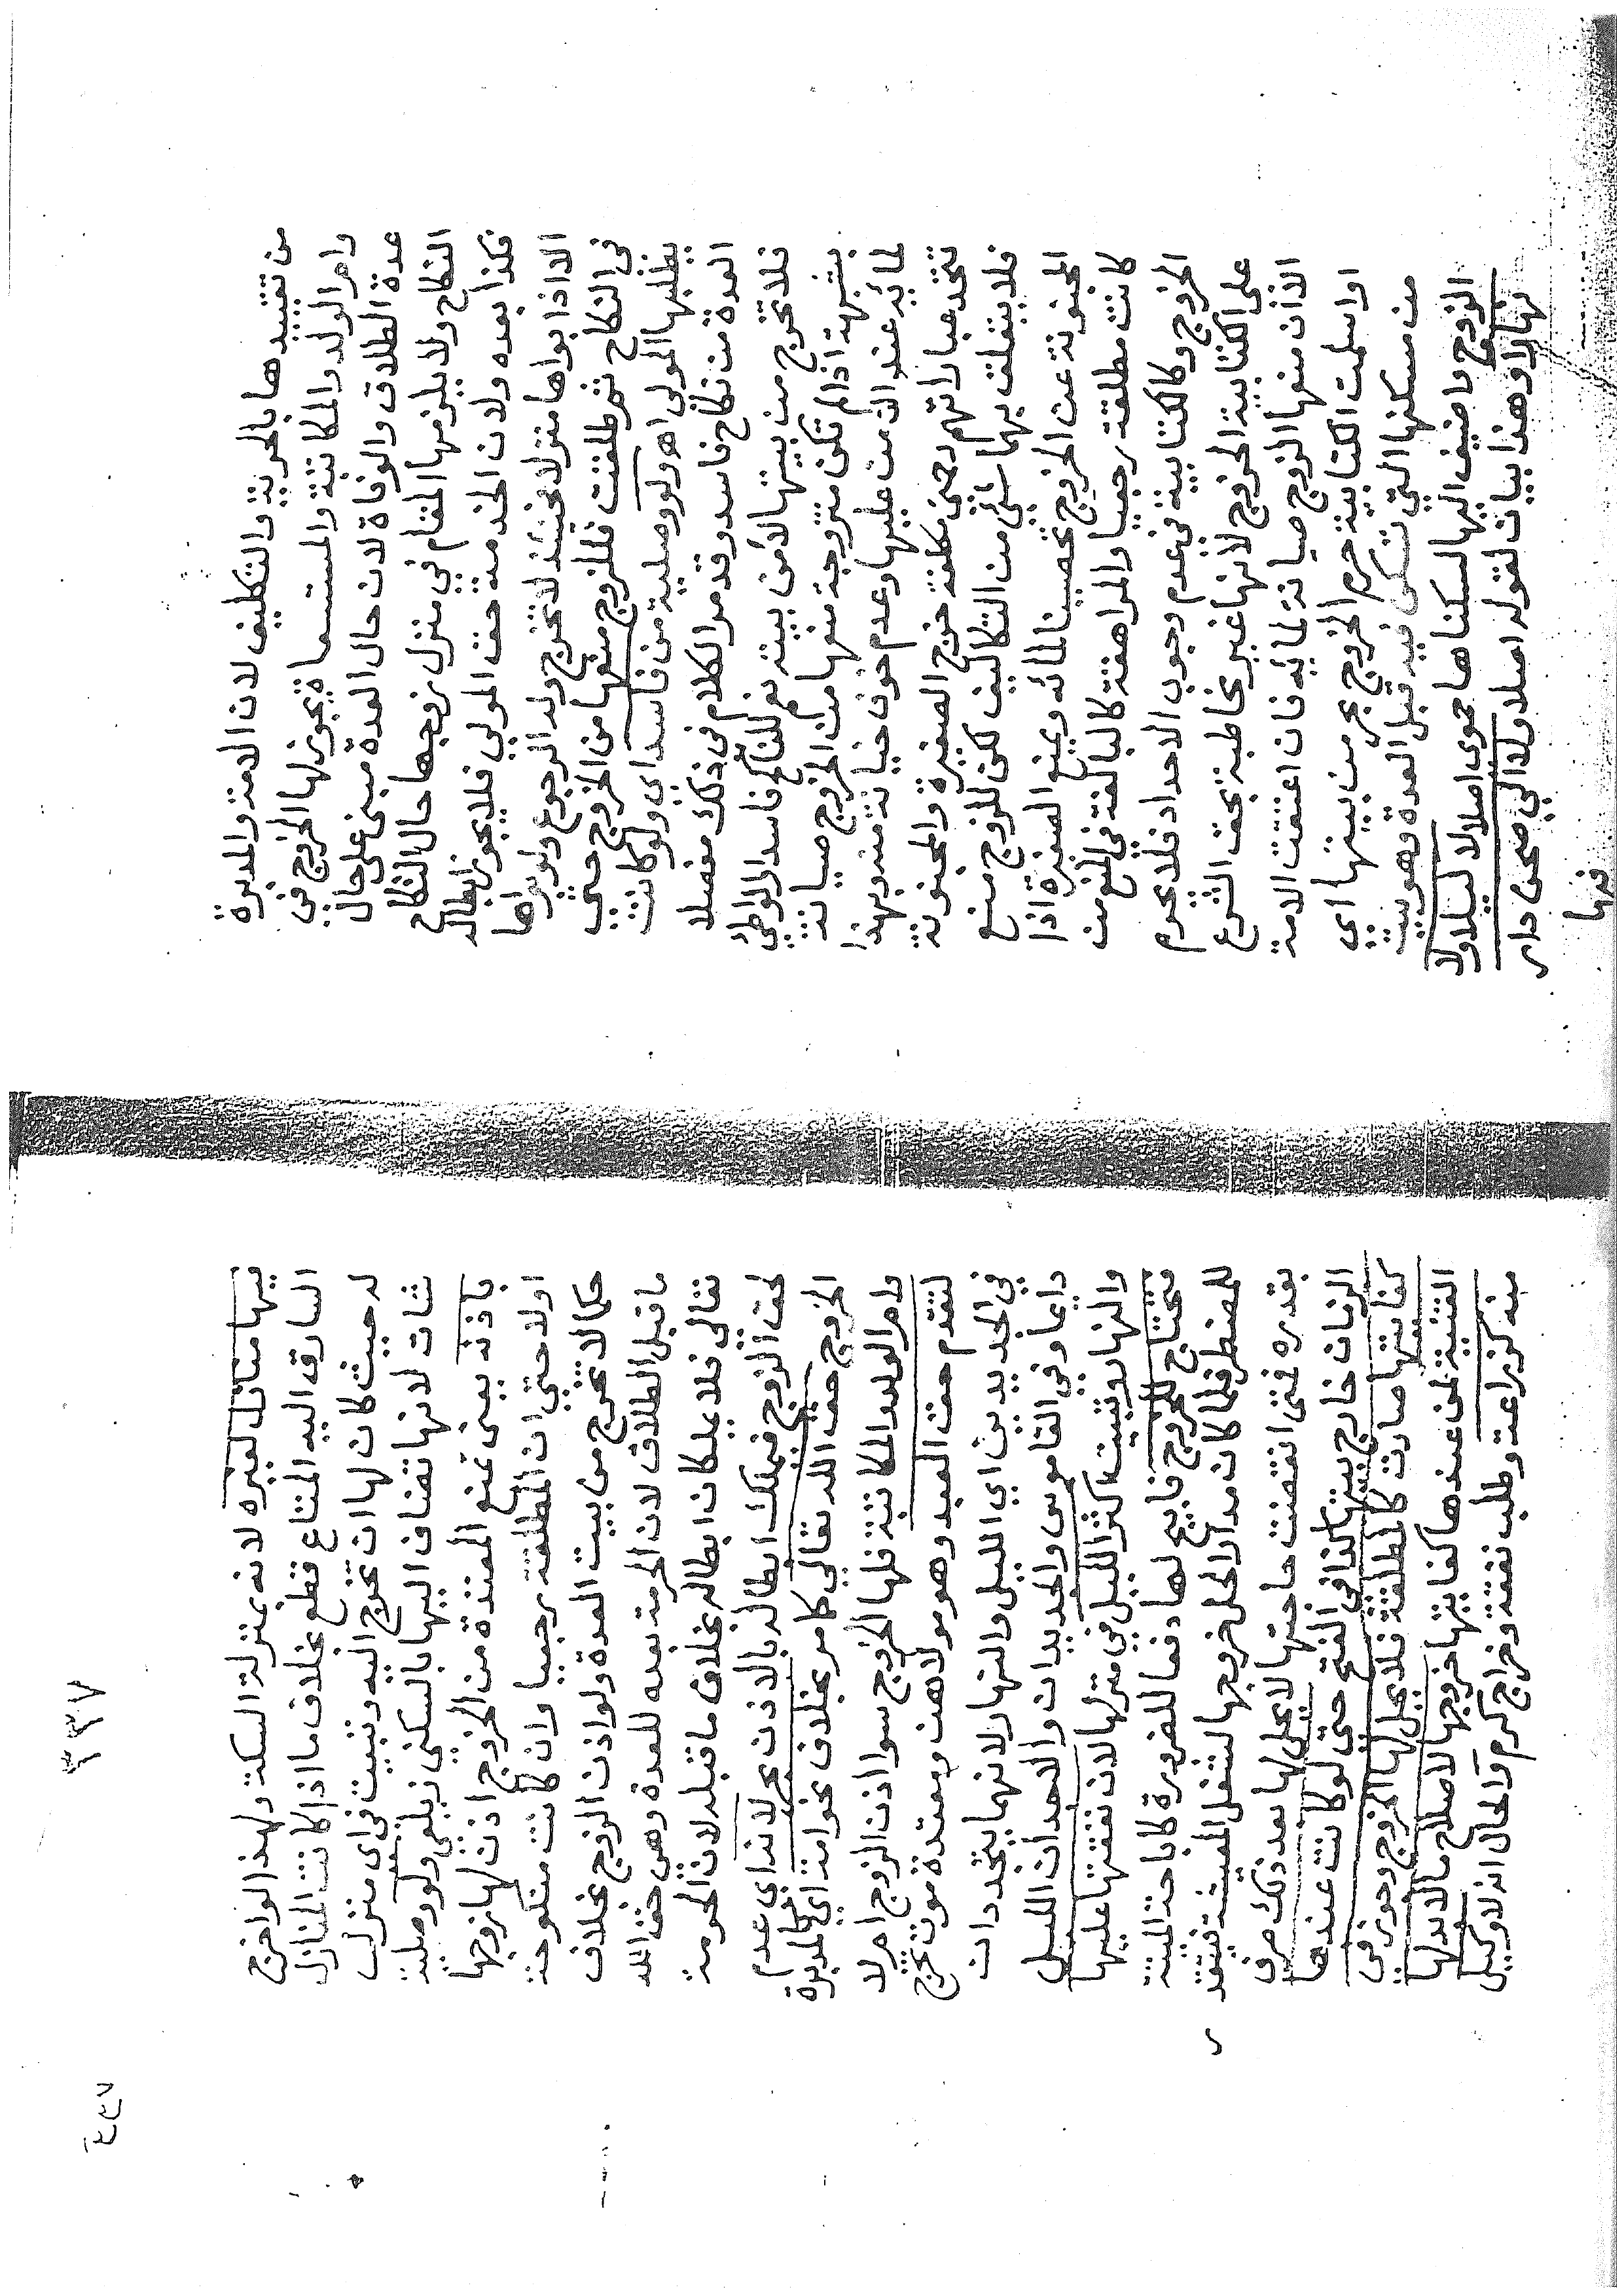 من تقييدها بالحرية والتكليف لان الامة والمدبرة
وام الولد والمكاتبة والمستسعاة يجوز لها الخروج في
عدة الطلاق والوفاة لان حال العدة مبنى على حال
النكاح ولا يلزمها المقام في منزل زوجها حال النكاح
فكذا بعده ولان الخدمة حق المولي فلا يجوز ابطاله
الا اذا بواها منزلا فحينئذ لا تخرج وله الرجوع ولو بواها
في النكاح ثم طلقت فللزوج منعها من الخروج حتي
يطلبها المولى اهـ ولو وصلية من فاسد اي ولو كانت
العدة من نكاح فاسد وقد مر الكلام في ذلك مفصلا
فلا تخرج من بيتها لامن بيته نعم للناكح فاسدا والواطئ
بشبهة اذا لم تكن متزوجة منعها من الخروج صيانة
لمائه عند الامن عليها وعدم خوف خيانة منه وبهذا
تتحد عباراتهم رحمتى مكلفة خرج الصغيرة والمجنونة
فلا يتعلق بهما شئ من التكاليف لكن للزوج منع
المجنونة عن الخروج تحصينا لمائه ويمنع الصغيرة اذا
كانت مطلقة رجعيا والمراهقة كالبالغة في المنع من
الخروج وكالكتابية في عدم وجوب الاحداد فلا يحرم
على الكتابية الخروج لانها غير مخاطبة بحق الشرع
الا ان منعها الزوج صيانة لمائه فان اعتقت الامة
او اسلمت الكتابية حرم الخروج بحر من بيتها اي
من مسكنها التي تسكن فيه قبل العدة وهو بيت
الزوج واضيف اليها لسكناها حموى اصلا لا ليلا ولا
نهارا وهذا بيان لقوله اصلا ولا الي صحن دار
فيها
٣٣٧
فيها منازل لغيره لانه بمنزلة السكة ولهذا لو اخرج
السارق اليه المتاع قطع بخلاف ما اذا كانت المنازل
له حيث كان لها ان تخرج اليه وتبيت في اى منزل
شات لانها تضاف اليها بالسكني زيلعى ولو وصلية
باذنه يعنى تمنع المعتدة من الخروج اذن لها زوجها
اولا حتي ان المطلقة رجعيا وان كانت منكوحة
حكما لا تخرج من بيت العدة ولو اذن الزوج بخلاف
ما قبل الطلاق لان الحرمة بعده للعدة وهى حق الله
تعالى فلا يملكان ابطاله بخلاف ما قبله لان الحرمة
لحق الزوج فيملك ابطاله بالاذن بحر لانه اي عدم
الخروج حق الله تعالي كما مر بخلاف نحو امة اي كالمدبرة
وام الولد والمكاتبة فلها الخروج سوا اذن الزوج ام لا
لتقدم حق العبد وهو مولاهن ومعتدة موت تخرج
في الجديدين اي الليل والنهار لانهما يتجددان
دايما وفي القاموس والجديدان والاجدان الليل
والنهار وتبيت اكثر الليل في منزلها لان نفقتها عليها
فتحتاج للخروج فابيح لها دفعا للضرورة كاباحة الميتة
للمضطر فلما كان مدار الحل خروجها لشغل المعيشة فيتقدر
بقدره فمتى انقضت حاجتها لا يحل لها بعد ذلك صرف
الزمان خارج بيتها كذا في الفتح حتي لو كانت عندها
كفايتها صارت كالمطلقة فلا يحل لها الخروج وجوز في
القنية لمن عندها كفايتها خروجها لاصلاح ما لا بد لها
منه كزراعة وطلب نفقة وخراج كرم والحال انه لا وكيل
٤٤٧